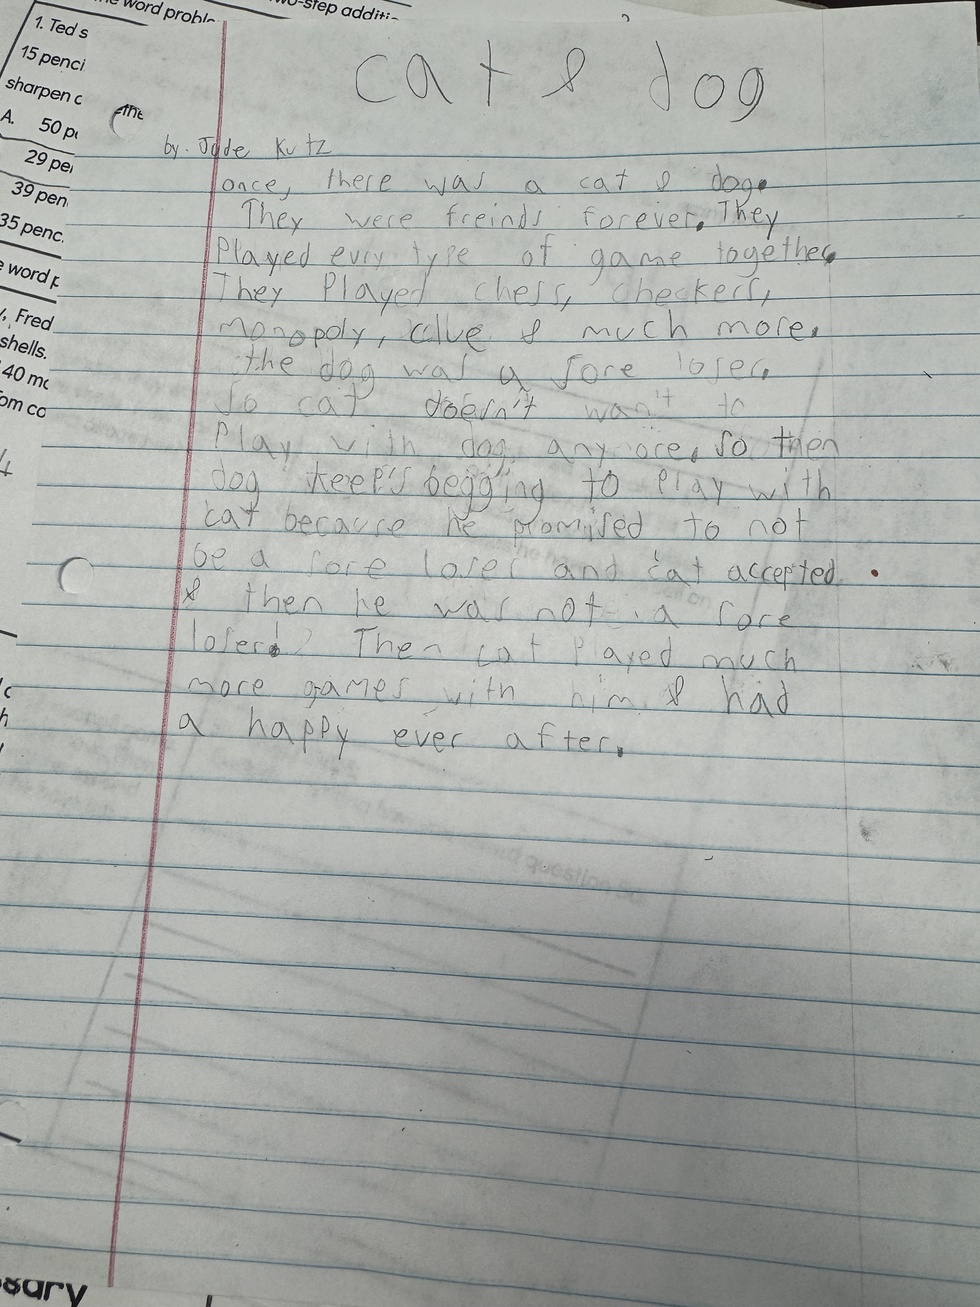 word probl
two-step additi
1. Ted s
15 penci
sharpen c
A. 50 p
29 pe
39 pen
35 penc
word p
Fred
shells.
40 mo
om co
the
cat & dog
by. Jade Kutz
once, there was a cat & dog.
They were freinds forever. They
Played evry type of game together.
They Played chess, checkers,
monopoly, clue & much more.
the dog was a sore loser.
So cat doesn't wan't to
Play with dog anymore. So then
dog keep's begging to Play with
cat because he promised to not
be a sore loser and cat accepted.
& then he was not a sore
loser! Then cat Played much
more games with him & had
a happy ever after.
question
ssary